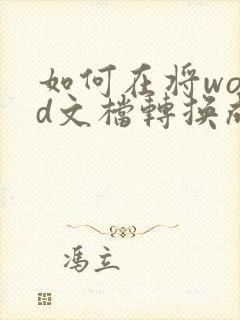 如何在将wo
d文檔轉换成
馮立